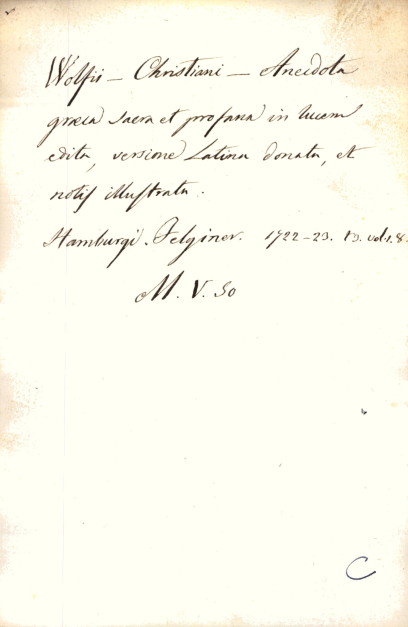 Wolfii – Christiani – Anecdota
græca sacra et profana in lucem
edita, versione Latina donata, et
notis illustrata.
Hamburgi. Felginer. 1722–23. vol. 8.
M. V. 50
C